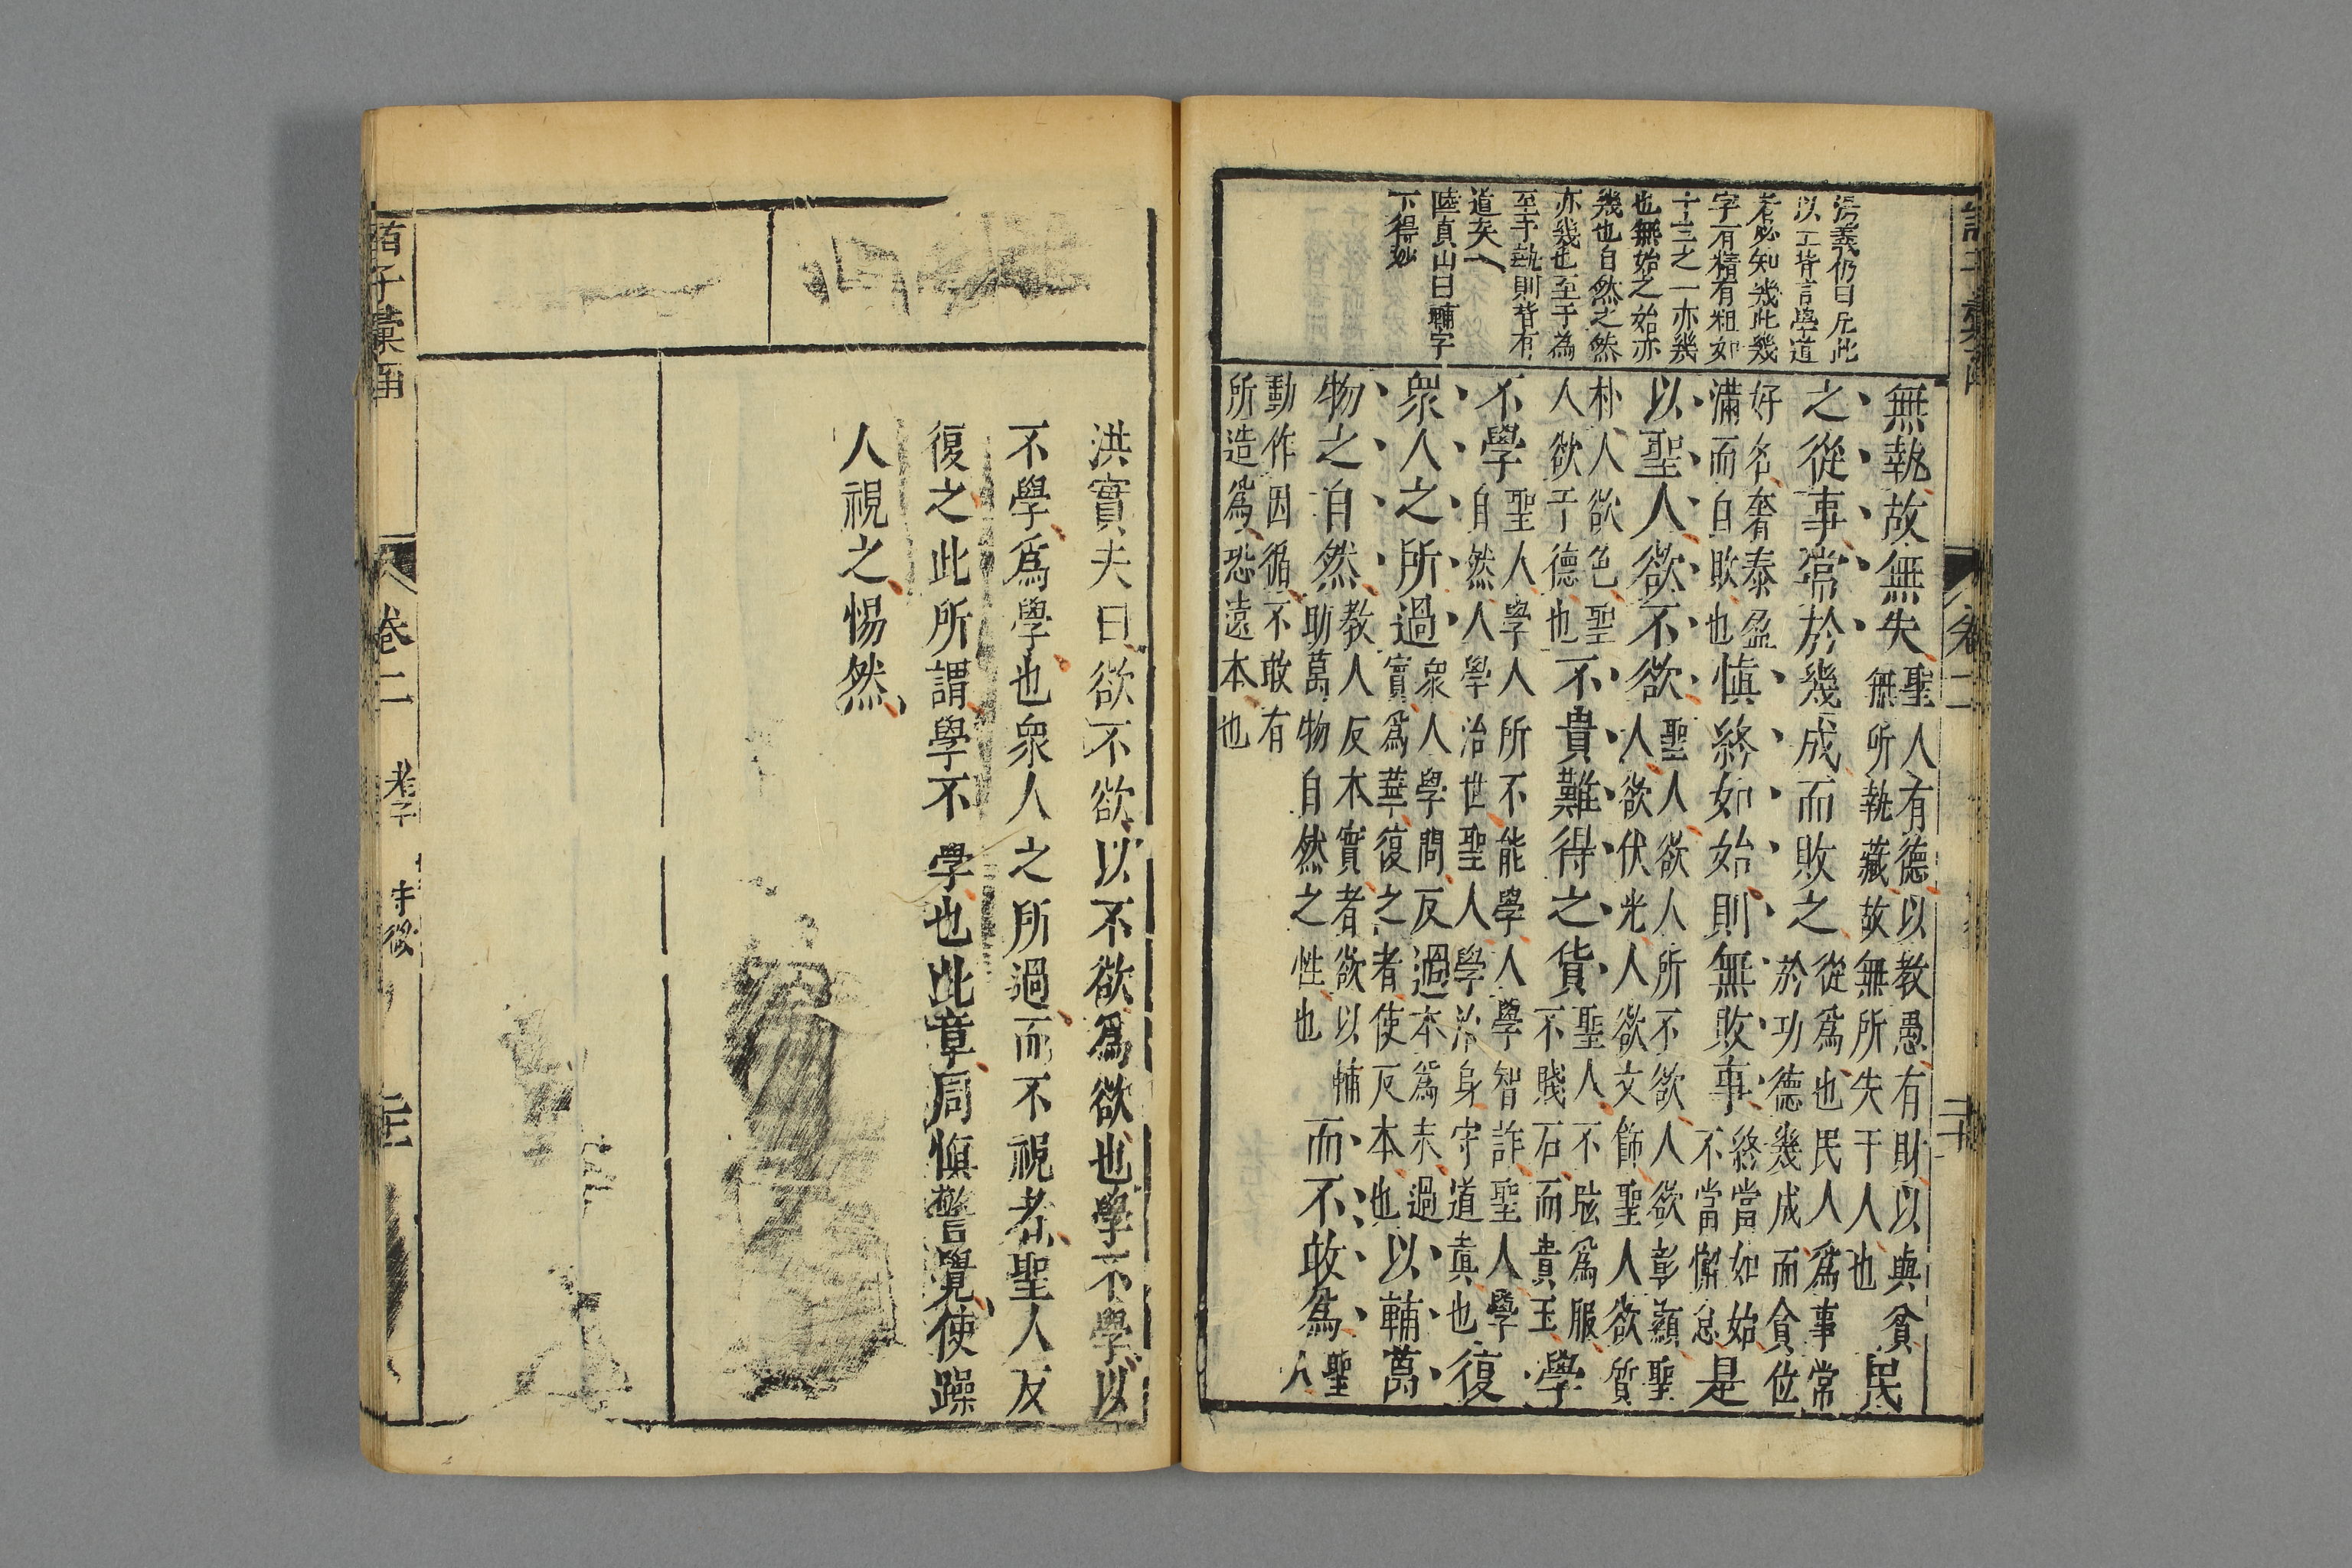 湯義仍曰凡此
以上皆言學道
者必知幾此幾
字有精有粗如
十之一亦幾
也無始之始亦
幾也自然之然
亦幾也至于為
至于執則皆有
道矣
陸貞山曰輔字
下得妙
無執故無失聖人有德以教愚有財以與貧
無所執藏故無所失于人也民
之從事常於幾成而敗之從爲也民人爲事常
於功德幾成而貪位
好名奢泰盈
滿而自敗也慎終如始則無敗事終當如始
不當懈怠是
以聖人欲不欲聖人欲人所不欲人欲彰顯聖
人欲伏光人欲文飾聖人欲質
朴人欲色聖
人欲于德也不貴難得之貨聖人不眩爲服
不賤石而貴玉學
不學聖人學人所不能學人學智詐聖人學
自然人學治世聖人學治身守道真也復
衆人之所過衆人學問反過本爲末過
實爲華復之者使反本也以輔萬
物之自然教人反本實者欲以輔
助萬物自然之性也而不敢爲聖
人
動作因循不敢有
所造爲恐遠本也
卷二
洪實夫曰欲不欲以不欲爲欲也學不學以
不學爲學也衆人之所過而不視者聖人反
復之此所謂學不學也此章周慎警覺使躁
人視之惕然
百子彙函
卷二
老子